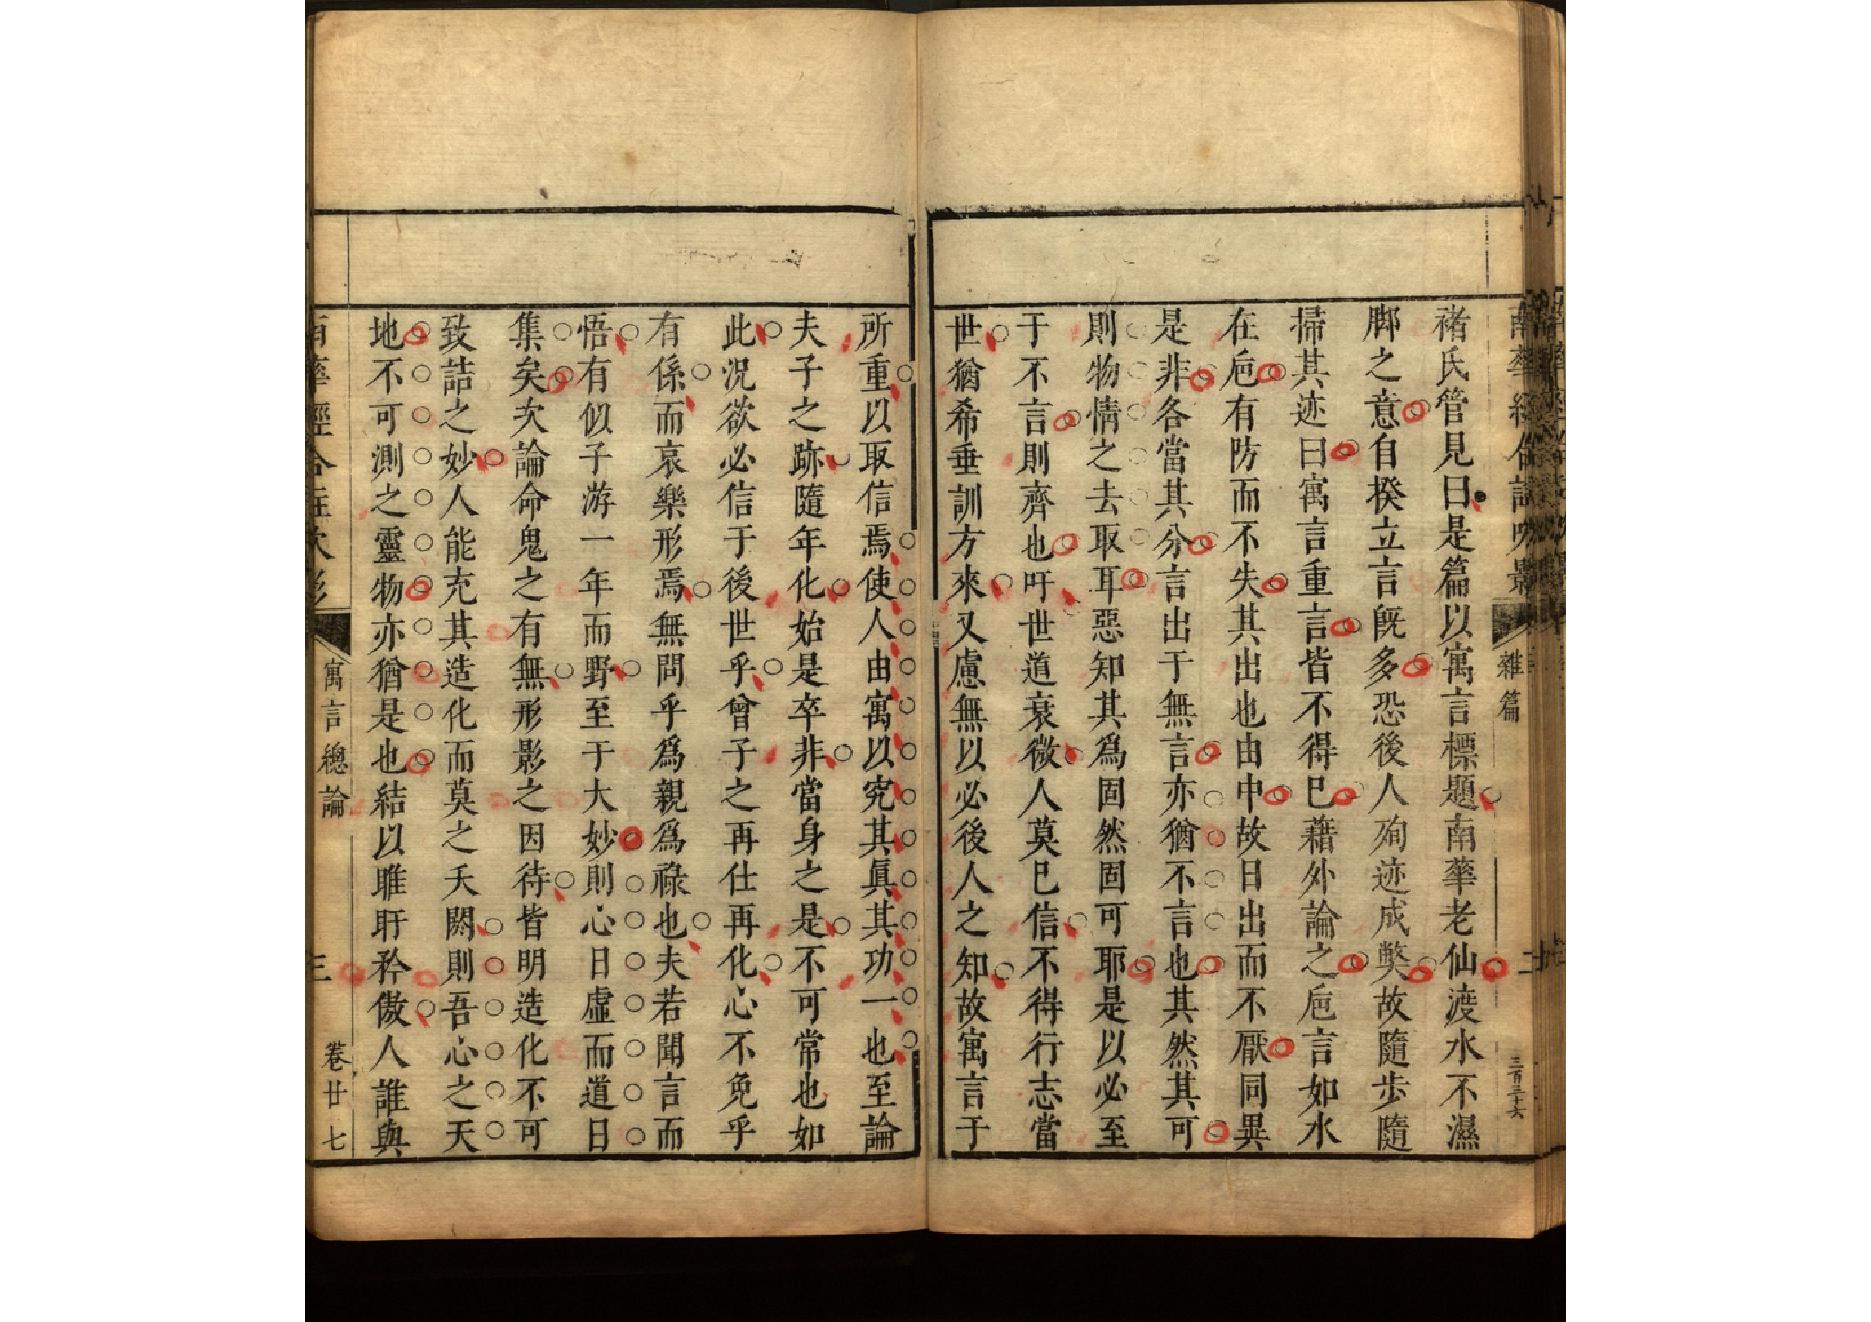 雜篇
三百三十六
褚氏管見曰是篇以寓言標題南華老仙渡水不濕
脚之意自揆立言旣多恐後人殉迹成獘故隨步隨
掃其迹曰寓言重言皆不得巳藉外論之巵言如水
在巵有防而不失其出也由中故日出而不厭同異
是非各當其分言出于無言亦猶不言也其然其可
則物情之去取耳惡知其爲固然固可耶是以必至
于不言則齊也吁世道衰微人莫巳信不得行志當
世猶希垂訓方來又慮無以必後人之知故寓言于
所重以取信焉使人由寓以究其眞其功一也至論
夫子之跡隨年化始是卒非當身之是不可常也如
此況欲必信于後世乎曾子之再仕再化心不免乎
有係而哀樂形焉無問乎爲親爲祿也夫若聞言而
悟有似子游一年而野至于大妙則心日虛而道日
集矣次論命鬼之有無形影之因待皆明造化不可
致詰之妙人能充其造化而莫之夭閼則吾心之天
地不可測之靈物亦猶是也結以雎盱矜傲人誰與
寓言總論
三
卷廿七